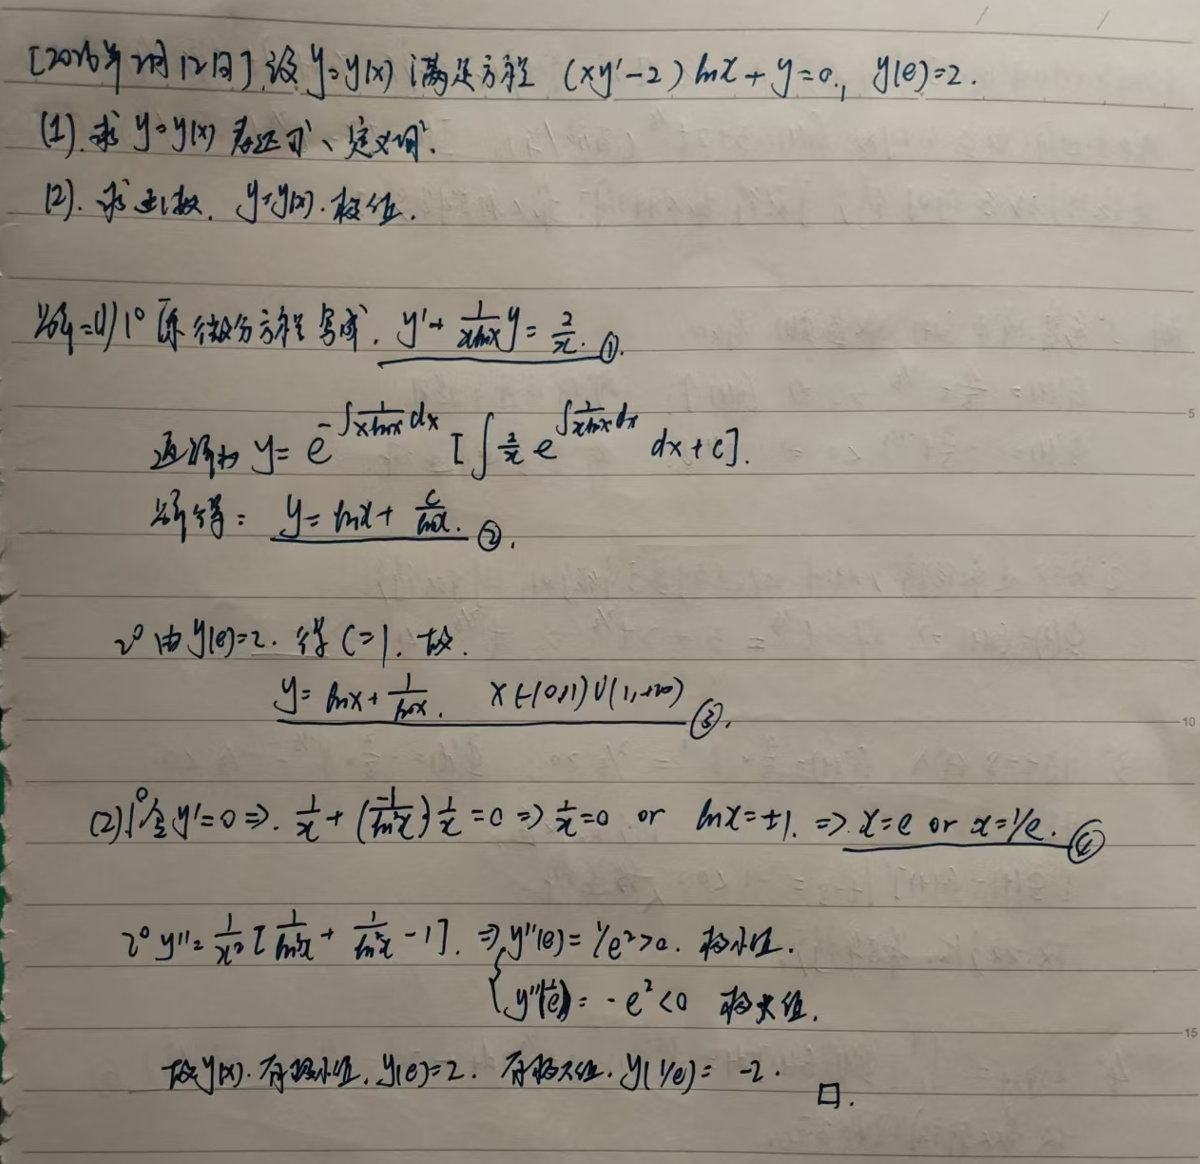 [2026年2月12日] 设 y=y(x) 满足方程 (xy'-2) lnx + y=0, y(e)=2.
(1). 求 y=y(x) 表达式、定义域.
(2). 求函数 y=y(x). 极值.
解=(1) 1° 原微分方程写成. y' + \frac{1}{xlnx} y = \frac{2}{x}. ①.
通解为 y= e^{-∫\frac{1}{xlnx}dx} [∫ \frac{2}{x} e^{∫\frac{1}{xlnx}dx} dx + c].
解得: y= lnx + \frac{c}{lnx}. ②.
2° 由 y(e)=2. 得 C=1. 故.
y= lnx + \frac{1}{lnx}. x∈(0,1)∪(1,+∞) ③.
(2) 1° 令 y'=0 ⇒. \frac{1}{x} + (\frac{-1}{ln²x}) \frac{1}{x} =0 ⇒ \frac{1}{x}=0 or lnx=±1. ⇒. x=e or x=1/e. ④
2° y''= \frac{1}{x²} [\frac{2}{ln³x} + \frac{1}{ln²x} - 1]. ⇒ y''(e) = 2/e²>0. 极小值.
y''(\frac{1}{e}) = -e²<0 极大值.
故 y(x). 有极小值. y(e)=2. 有极大值. y(1/e) = -2.
□.